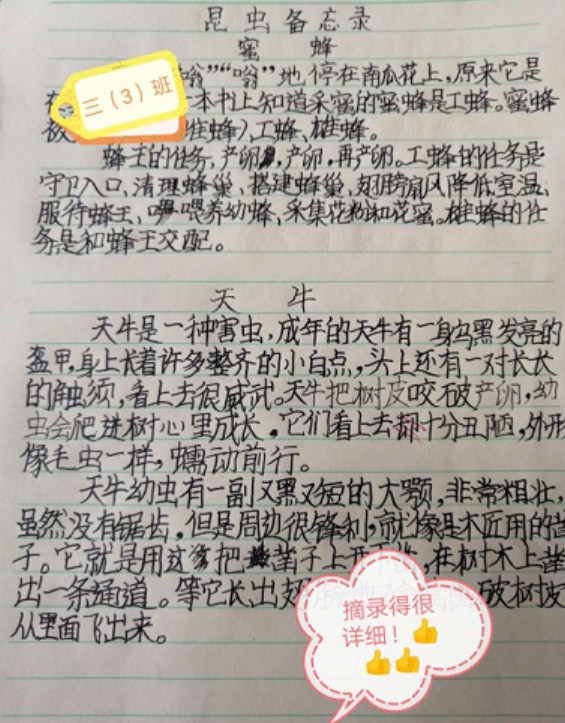 昆虫备忘录
蜜 蜂
嗡”“嗡”地停在南瓜花上,原来它是
三(3)班
本书上知道采蜜的蜜蜂是工蜂。蜜蜂
蜂),工蜂、雄蜂。
蜂王的任务,产卵,产卵,再产卵。工蜂的任务是
守卫入口、清理蜂巢、搭建蜂巢、翅膀扇风降低室温、
服侍蜂王、喂养幼蜂、采集花粉和花蜜。雄蜂的任
务是和蜂王交配。
天 牛
天牛是一种害虫,成年的天牛有一身乌黑发亮的
盔甲,身上长着许多整齐的小白点,头上还有一对长长
的触须,看上去很威武。天牛把树皮咬破产卵,幼
虫会爬进树心里成长。它们看上去却十分丑陋,外形
像毛虫一样,蠕动前行。
天牛幼虫有一副又黑又短的大颚,非常粗壮,
虽然没有锯齿,但是周边很锋利,就像是木匠用的凿
子。它就是用这把凿子上下,在树木上凿
出一条通道。等它长出破树皮
从里面飞出来。
摘录得很
详细!👍
👍👍